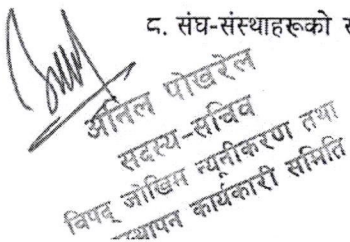 ८. संघ-संस्थाहरूको
अनिल पोखरेल
सदस्य-सचिव
विपद् जोखिम न्यूनीकरण तथा
कार्यकारी समिति